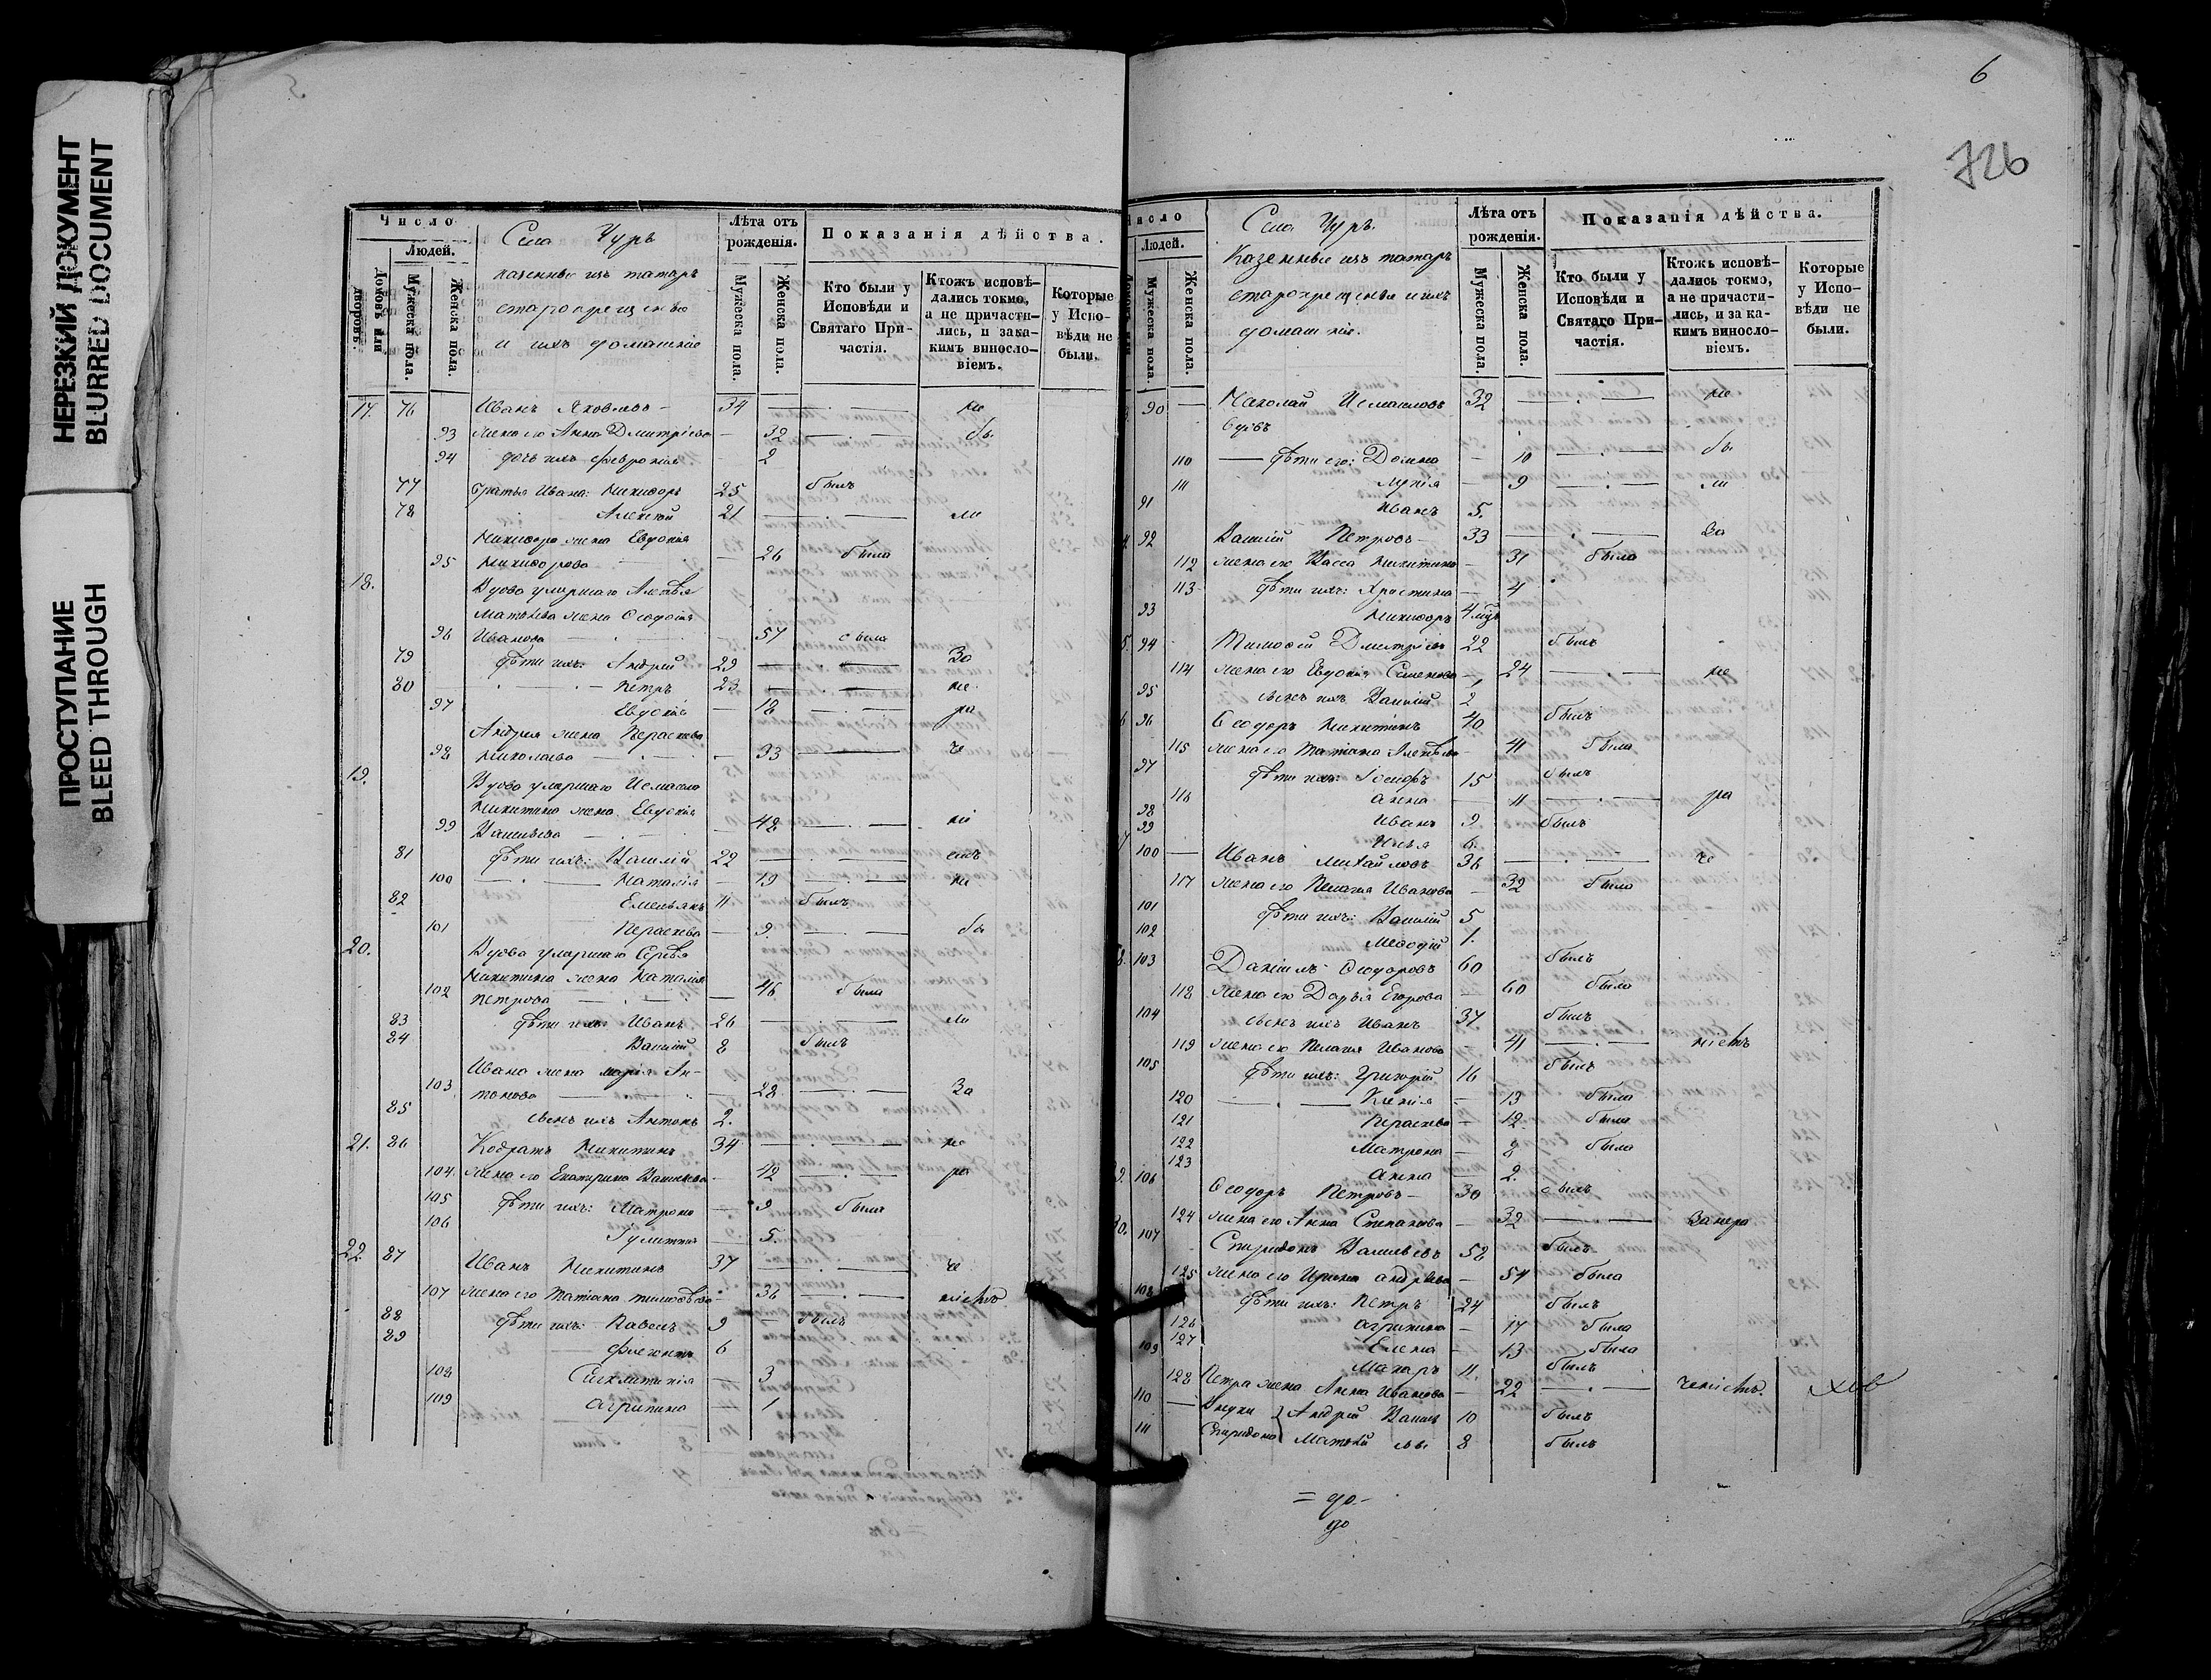 НЕРЕЗКИЙ ДОКУМЕНТ
BLURRED DOCUMENT
ПРОСТУПАНИЕ
BLEED THROUGH
Число
Людей.
Домовъ или дворовъ.
Мужеска пола.
Женска пола.
Села Чуръ
казенные изъ татаръ
старокрещеные
и ихъ домашние
Лѣта отъ рожденія.
Мужеска пола.
Женска пола.
Показанія дѣйства.
Кто были у Исповѣди и Святаго Причастія.
Ктожъ исповѣдались токмо, а не причастились, и за какимъ винословіемъ.
Которые у Исповѣди не были.
17. 76 Иванъ Яковлевъ 34 не
93 жена его Анна Дмитріева 32 бы
94 дочь ихъ Феврония 2
77 братья Ивана: Никифоръ 25 былъ
78 Алексѣй 21 ли
Никифора жена Евдокия
95 Никифорова 26 была
18. Вдова умершаго Алексѣя
Матвѣева жена Ѳеодосия
96 Иванова 57 была
79 дѣти ихъ: Андрей 29 За
80 Петръ 23 не
97 Евдокія 18 ра
Андрея жена Параскева
98 Николаева 33 че
19. Вдова умершаго Исмаила
Никитина жена Евдокия
99 Васильева 48 ні
81 дѣти ихъ: Василій 22
100 Наталія 19 не
82 Емельянъ 11 былъ
101 Параскева 9 бы
20. Вдова умершаго Сергѣя
Никитина жена Наталия
102 Петрова 46 была
83 дѣти ихъ: Иванъ 26 ли
84 Василій 8 былъ
Ивана жена Марія Ан-
103 тонова 28 За
85 сынъ ихъ Антонъ 2.
21. 86 Кодратъ Никитинъ 34 не
104 жена его Екатерина Васильева 42 ра
105 дѣти ихъ: Матрона 9 была
106 Іулиттия 5.
22 87 Иванъ Никитинъ 37 че
107 жена его Татіана Тимоѳѣева 36 ніемъ
88 дѣти ихъ: Павелъ 9 былъ
89 Флегонтъ 6
108 Синклитикія 3
109 Агрипина 1
6
726
Число
Людей.
Мужеска пола.
Женска пола.
Села Чуръ.
Казенные изъ татаръ
старокрещеные и ихъ
домашніе.
Лѣта отъ рожденія.
Мужеска пола.
Женска пола.
Показанія дѣйства.
Кто были у Исповѣди и Святаго Причастія.
Ктожъ исповѣдались токмо, а не причастились, и за какимъ винословіемъ.
Которые у Исповѣди не были.
90 Николай Исмаиловъ 32 не
вдовъ
110 дѣти его: Домна 10 бы
111 Лукія 9 ли
91 Иванъ 5.
92 Василій Петровъ 33 За
112 жена его Васса Никитина 31 была
113 дѣти ихъ: Христина 4
93 Никифоръ 4 мѣс
94 Тимоѳей Дмитріевъ 22 былъ
114 жена его Евдокія Семенова 24 не
95 сынъ ихъ Василий 2
96 Ѳеодоръ Никитинъ 40 былъ
115 жена его Татіана Алексѣева 41 была
97 дѣти ихъ: Іосифъ 15 былъ
116 Анна 11 ра
98 Иванъ 9 былъ
99 Илья 6.
100 Иванъ Михайловъ 36 че
117 жена его Пелагия Иванова 32 была
101 дѣти ихъ: Василий 5
102 Меѳодій 1.
103 Даніилъ Ѳеодоровъ 60 былъ
118 жена его Дарья Егорова 60 была
104 сынъ ихъ Иванъ 37 былъ
119 жена его Пелагия Иванова 41 ніемъ
105 дѣти ихъ: Григорій 16 былъ
120 Ксенія 13 была
121 Параскева 12 была
122 Матрона 8 была
123 Анна 2.
106 Ѳеодоръ Петровъ 30 былъ
124 жена его Анна Степанова 32 За нера
30. 107 Спиридонъ Васильевъ 58 былъ
125 жена его Ирина Андрѣева 54 была
108 дѣти ихъ: Петръ 24 былъ
126 Агрипина 17 была
127 Елена 13 была
109 Макаръ 11. былъ
128 Петра жена Анна Иванова 22 ченіемъ.
110 Внуки Андрей Васильевъ 10 былъ
111 Спиридона Матвѣй 8 былъ